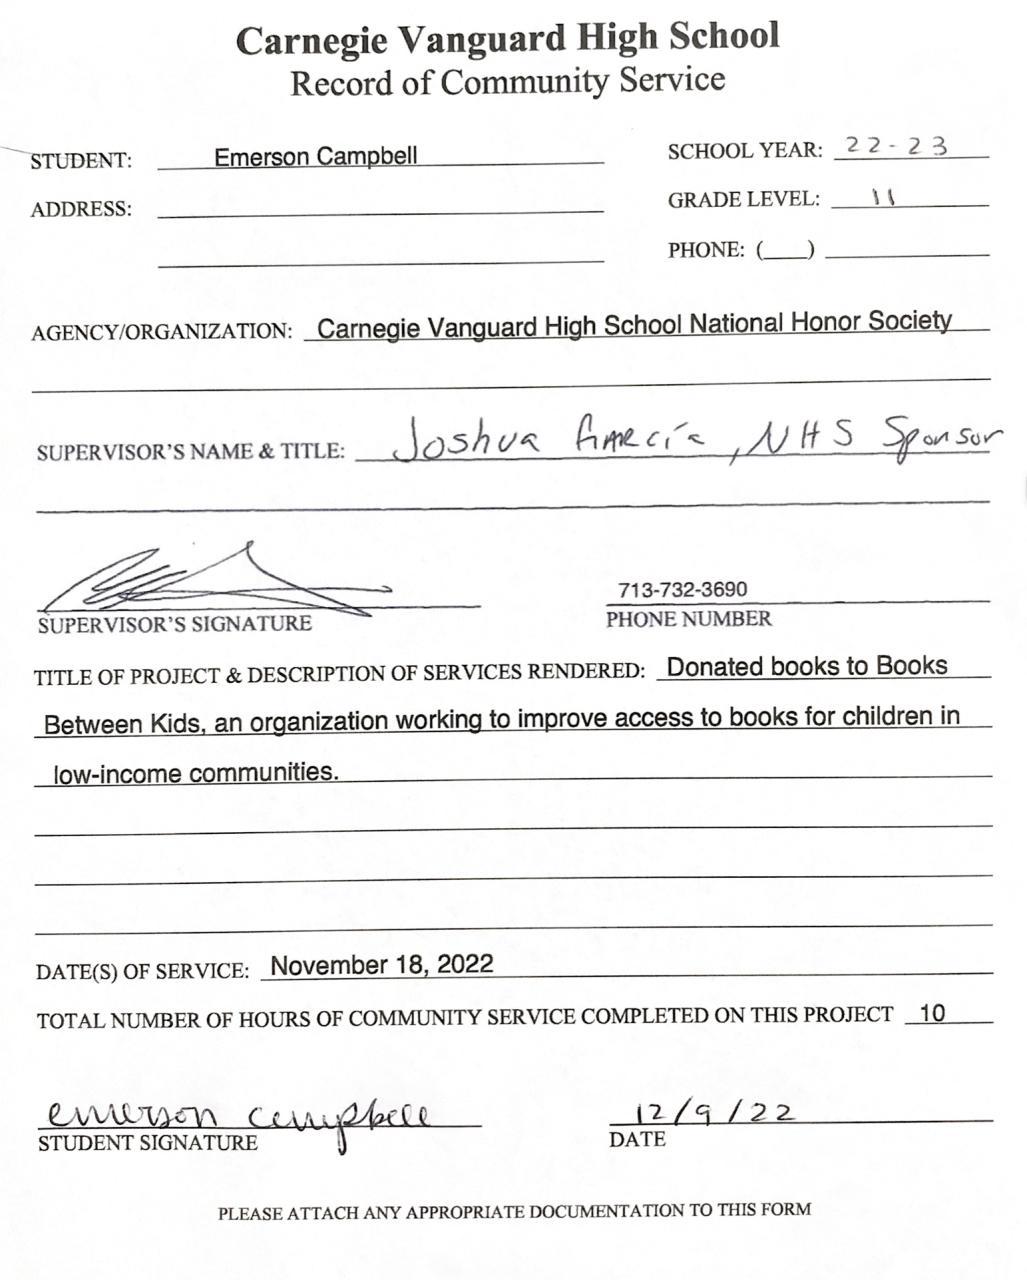 Carnegie Vanguard High School
Record of Community Service
STUDENT: Emerson Campbell SCHOOL YEAR: 22-23
ADDRESS: GRADE LEVEL: 11
PHONE: (___)
AGENCY/ORGANIZATION: Carnegie Vanguard High School National Honor Society
SUPERVISOR'S NAME & TITLE: Joshua García, NHS Sponsor
713-732-3690
SUPERVISOR'S SIGNATURE PHONE NUMBER
TITLE OF PROJECT & DESCRIPTION OF SERVICES RENDERED: Donated books to Books
Between Kids, an organization working to improve access to books for children in
low-income communities.
DATE(S) OF SERVICE: November 18, 2022
TOTAL NUMBER OF HOURS OF COMMUNITY SERVICE COMPLETED ON THIS PROJECT 10
emerson campbell 12/9/22
STUDENT SIGNATURE DATE
PLEASE ATTACH ANY APPROPRIATE DOCUMENTATION TO THIS FORM